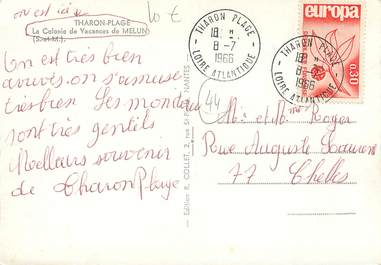 on est ici
10 €
THARON-PLAGE
La Colonie de Vacances de MELUN
(S.-et-M.)
On est très bien
arrivés. on s'amuse
très bien. Les moniteurs
sont très gentils
Meilleurs souvenir
de Tharon Plage
Edition R. COLLET, 2, rue St-Pierre, NANTES
44
THARON PLAGE
8-7
1966
LOIRE ATLANTIQUE
THARON PLAGE
8-7
1966
LOIRE ATLANTIQUE
europa
0,30
Mr et M. Royer
Rue Auguste
77 Chelles